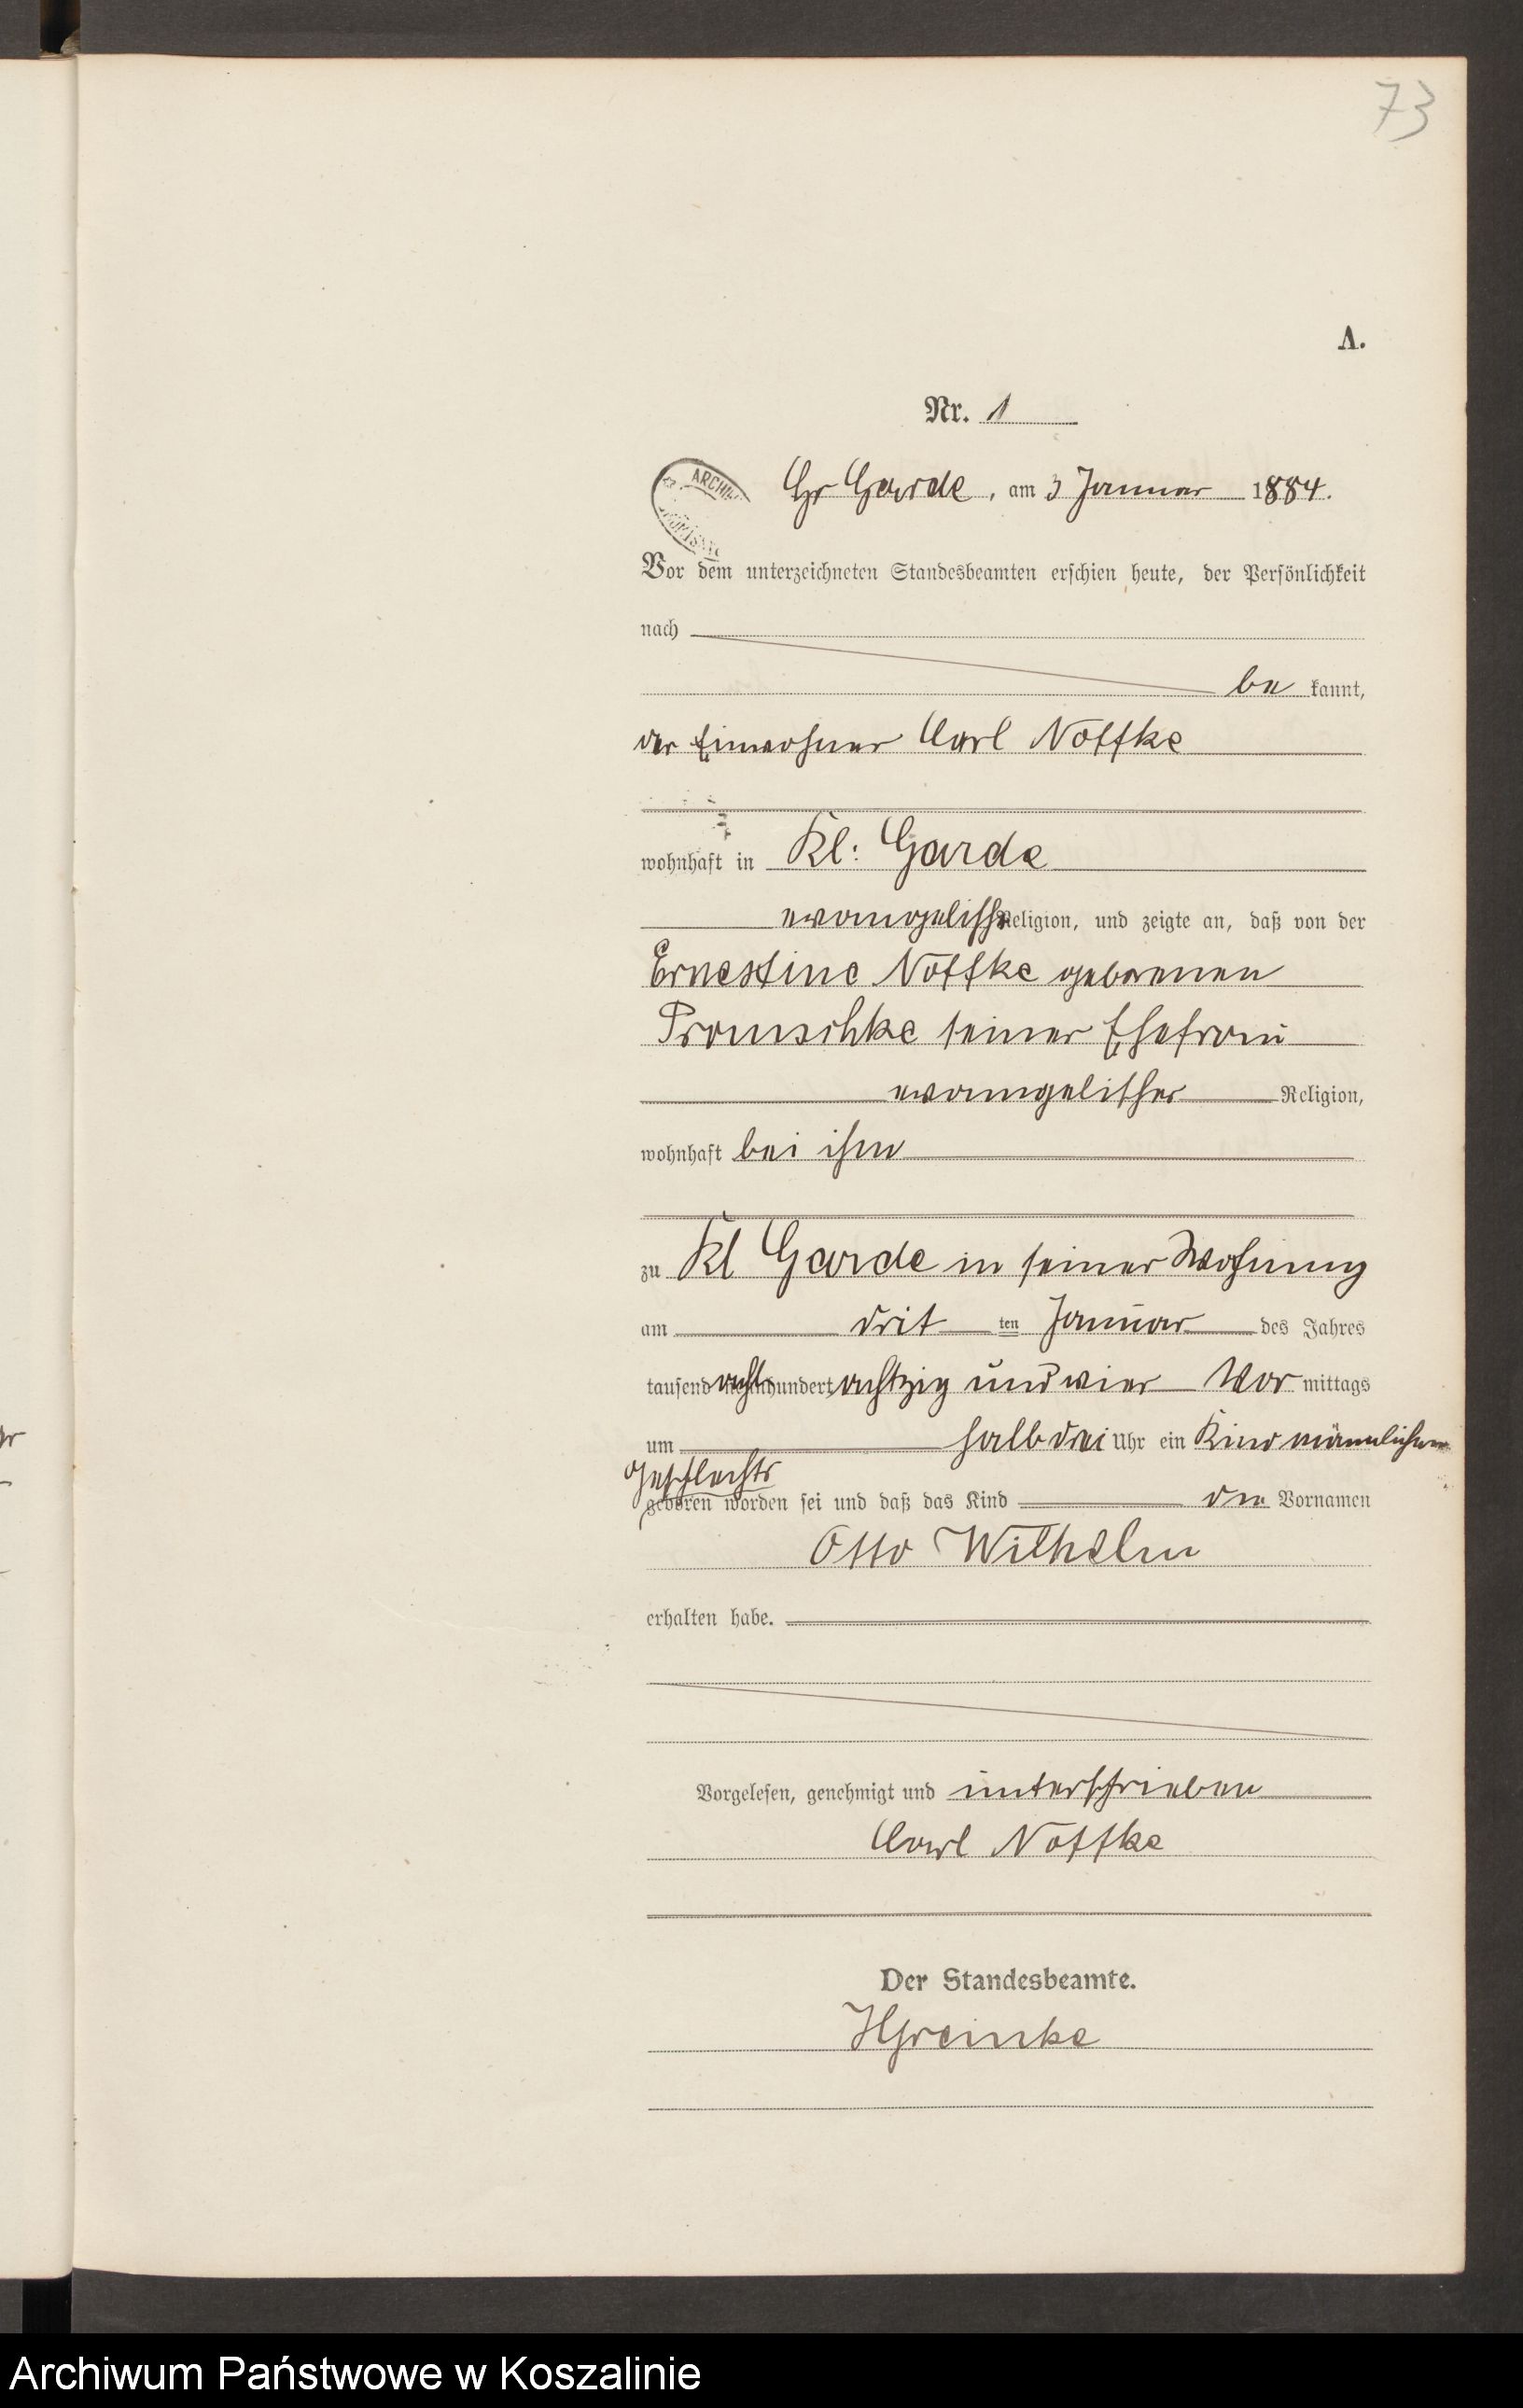 73
A.
Nr. 1
ARCHIW
Gr Garde, am 3 Januar 1884.
Vor dem unterzeichneten Standesbeamten erschien heute, der Persönlichkeit
nach
be kannt,
der Einwohner Carl Noffke
wohnhaft in Kl: Garde
evangelischer Religion, und zeigte an, daß von der
Ernestine Noffke geborenen
seiner Ehefrau
evangelischer Religion,
wohnhaft bei ihm
zu Kl Garde in seiner Wohnung
am dritten Januar des Jahres
tausend acht hundert achtzig und vier Vor mittags
um halb drei Uhr ein Kind männlichen
Geschlechts
geboren worden sei und daß das Kind die Vornamen
Otto Wilhelm
erhalten habe.
Vorgelesen, genehmigt und unterschrieben
Carl Noffke
Der Standesbeamte.
HGreinke
Archiwum Państwowe w Koszalinie